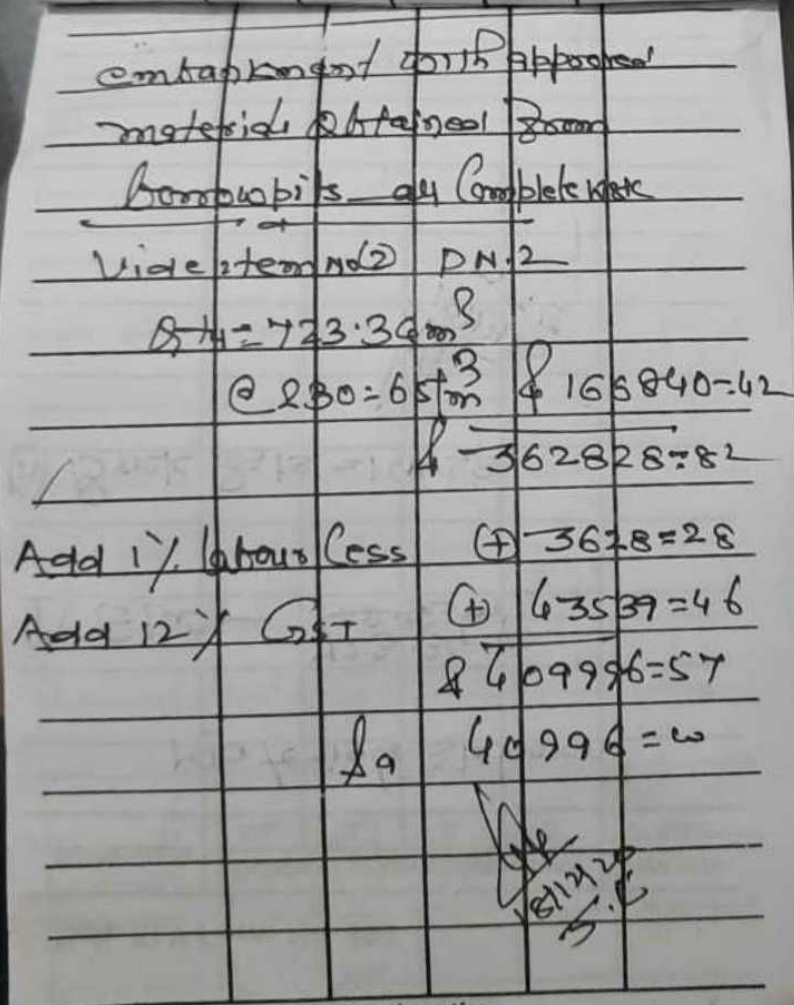 embankment with approved
materials obtained from
borrowpits all Complete work
Vide item No(2) P.N.2
Qty = 723.36m³
@ 230=65/m³ ₹ 166840=42
₹ 362828=82
Add 1% labour Cess (+) 3628=28
Add 12% GST (+) 43539=46
₹ 409996=57
Sa 40996=00
18/12/20
J.E